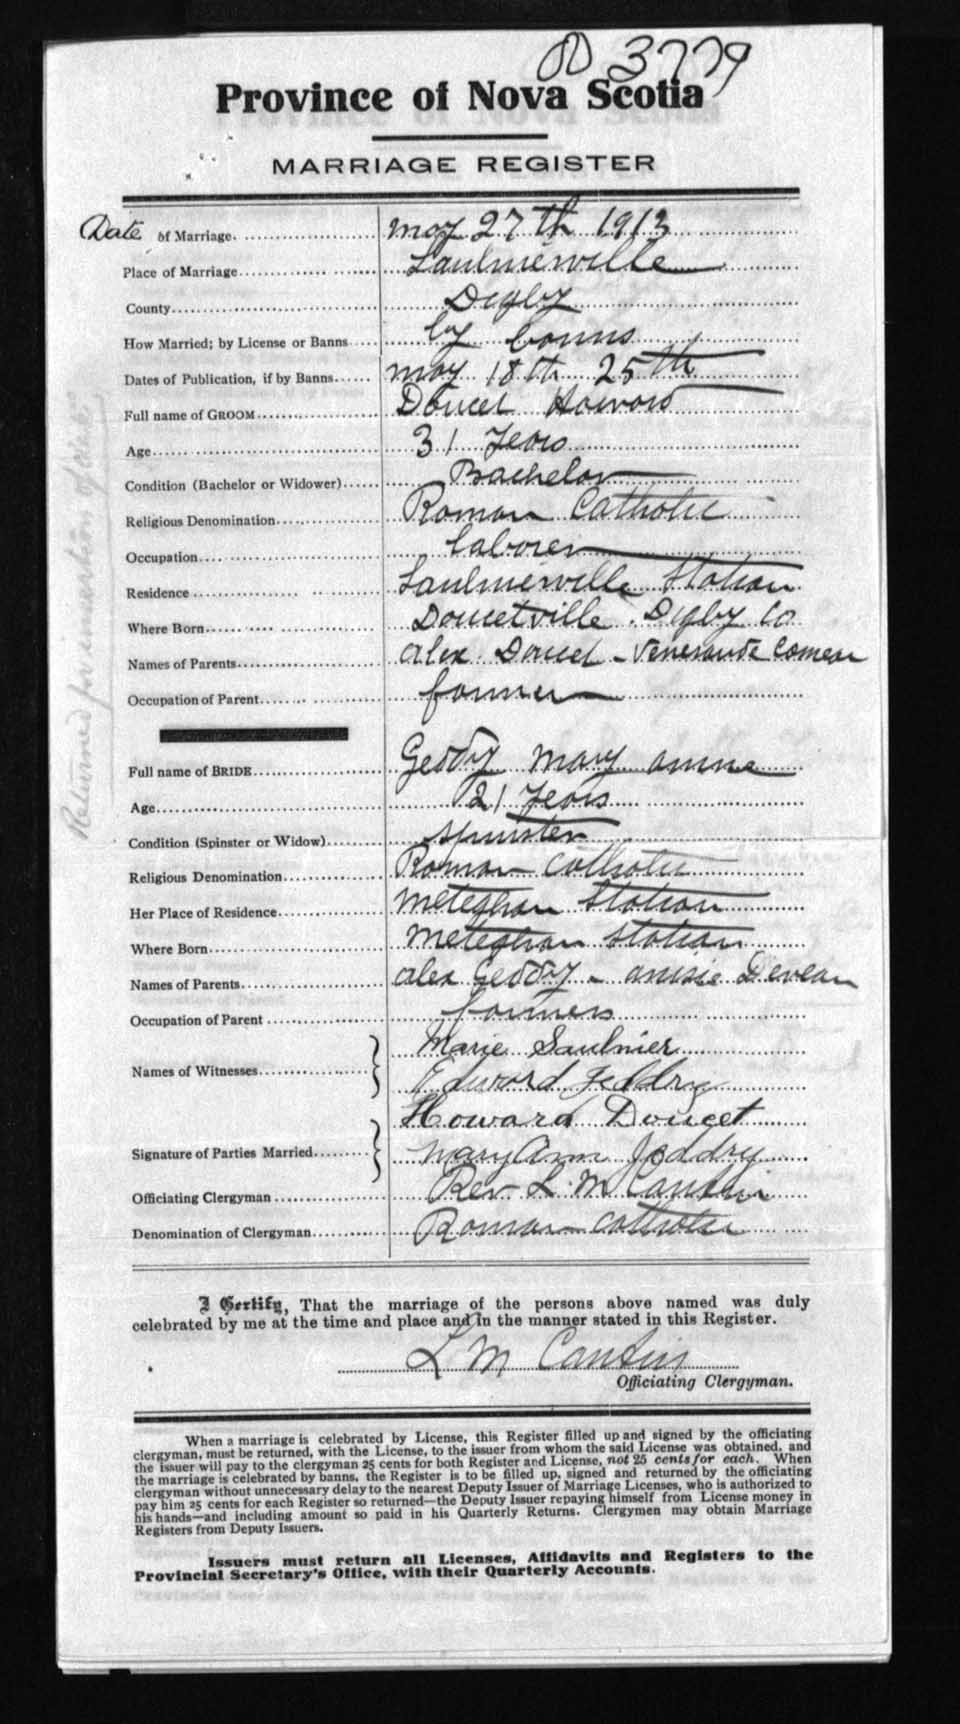 3779
Province of Nova Scotia
MARRIAGE REGISTER
Date of Marriage may 27th 1913
Place of Marriage Saulnierville
County Digby
How Married; by License or Banns by banns
Dates of Publication, if by Banns may 18th 25th
Full name of GROOM Doucet Howard
Age 31 years
Condition (Bachelor or Widower) Bachelor
Religious Denomination Roman Catholic
Occupation laborer
Residence Saulnierville Station
Where Born Doucetville. Digby Co
Names of Parents alex Doucet - Venerande Comeau
Occupation of Parent farmer
Full name of BRIDE Geddry mary anne
Age 21 years
Condition (Spinster or Widow) spinster
Religious Denomination Roman Catholic
Her Place of Residence Meteghan Station
Where Born Meteghan Station
Names of Parents alex Geddry - Deveau
Occupation of Parent farmers
Names of Witnesses Marie Saulnier
Edward Jeddry
Howard Doucet
Signature of Parties Married Mary Ann Jeddry
Officiating Clergyman Rev. L. M
Denomination of Clergyman Roman Catholic
Returned for insertion of date
I Certify, That the marriage of the persons above named was duly
celebrated by me at the time and place and in the manner stated in this Register.
L M
Officiating Clergyman.
When a marriage is celebrated by License, this Register filled up and signed by the officiating
clergyman, must be returned, with the License, to the issuer from whom the said License was obtained, and
the issuer will pay to the clergyman 25 cents for both Register and License, not 25 cents for each. When
the marriage is celebrated by banns, the Register is to be filled up, signed and returned by the officiating
clergyman without unnecessary delay to the nearest Deputy Issuer of Marriage Licenses, who is authorized to
pay him 25 cents for each Register so returned—the Deputy Issuer repaying himself from License money in
his hands—and including amount so paid in his Quarterly Returns. Clergymen may obtain Marriage
Registers from Deputy Issuers.
Issuers must return all Licenses, Affidavits and Registers to the
Provincial Secretary's Office, with their Quarterly Accounts.